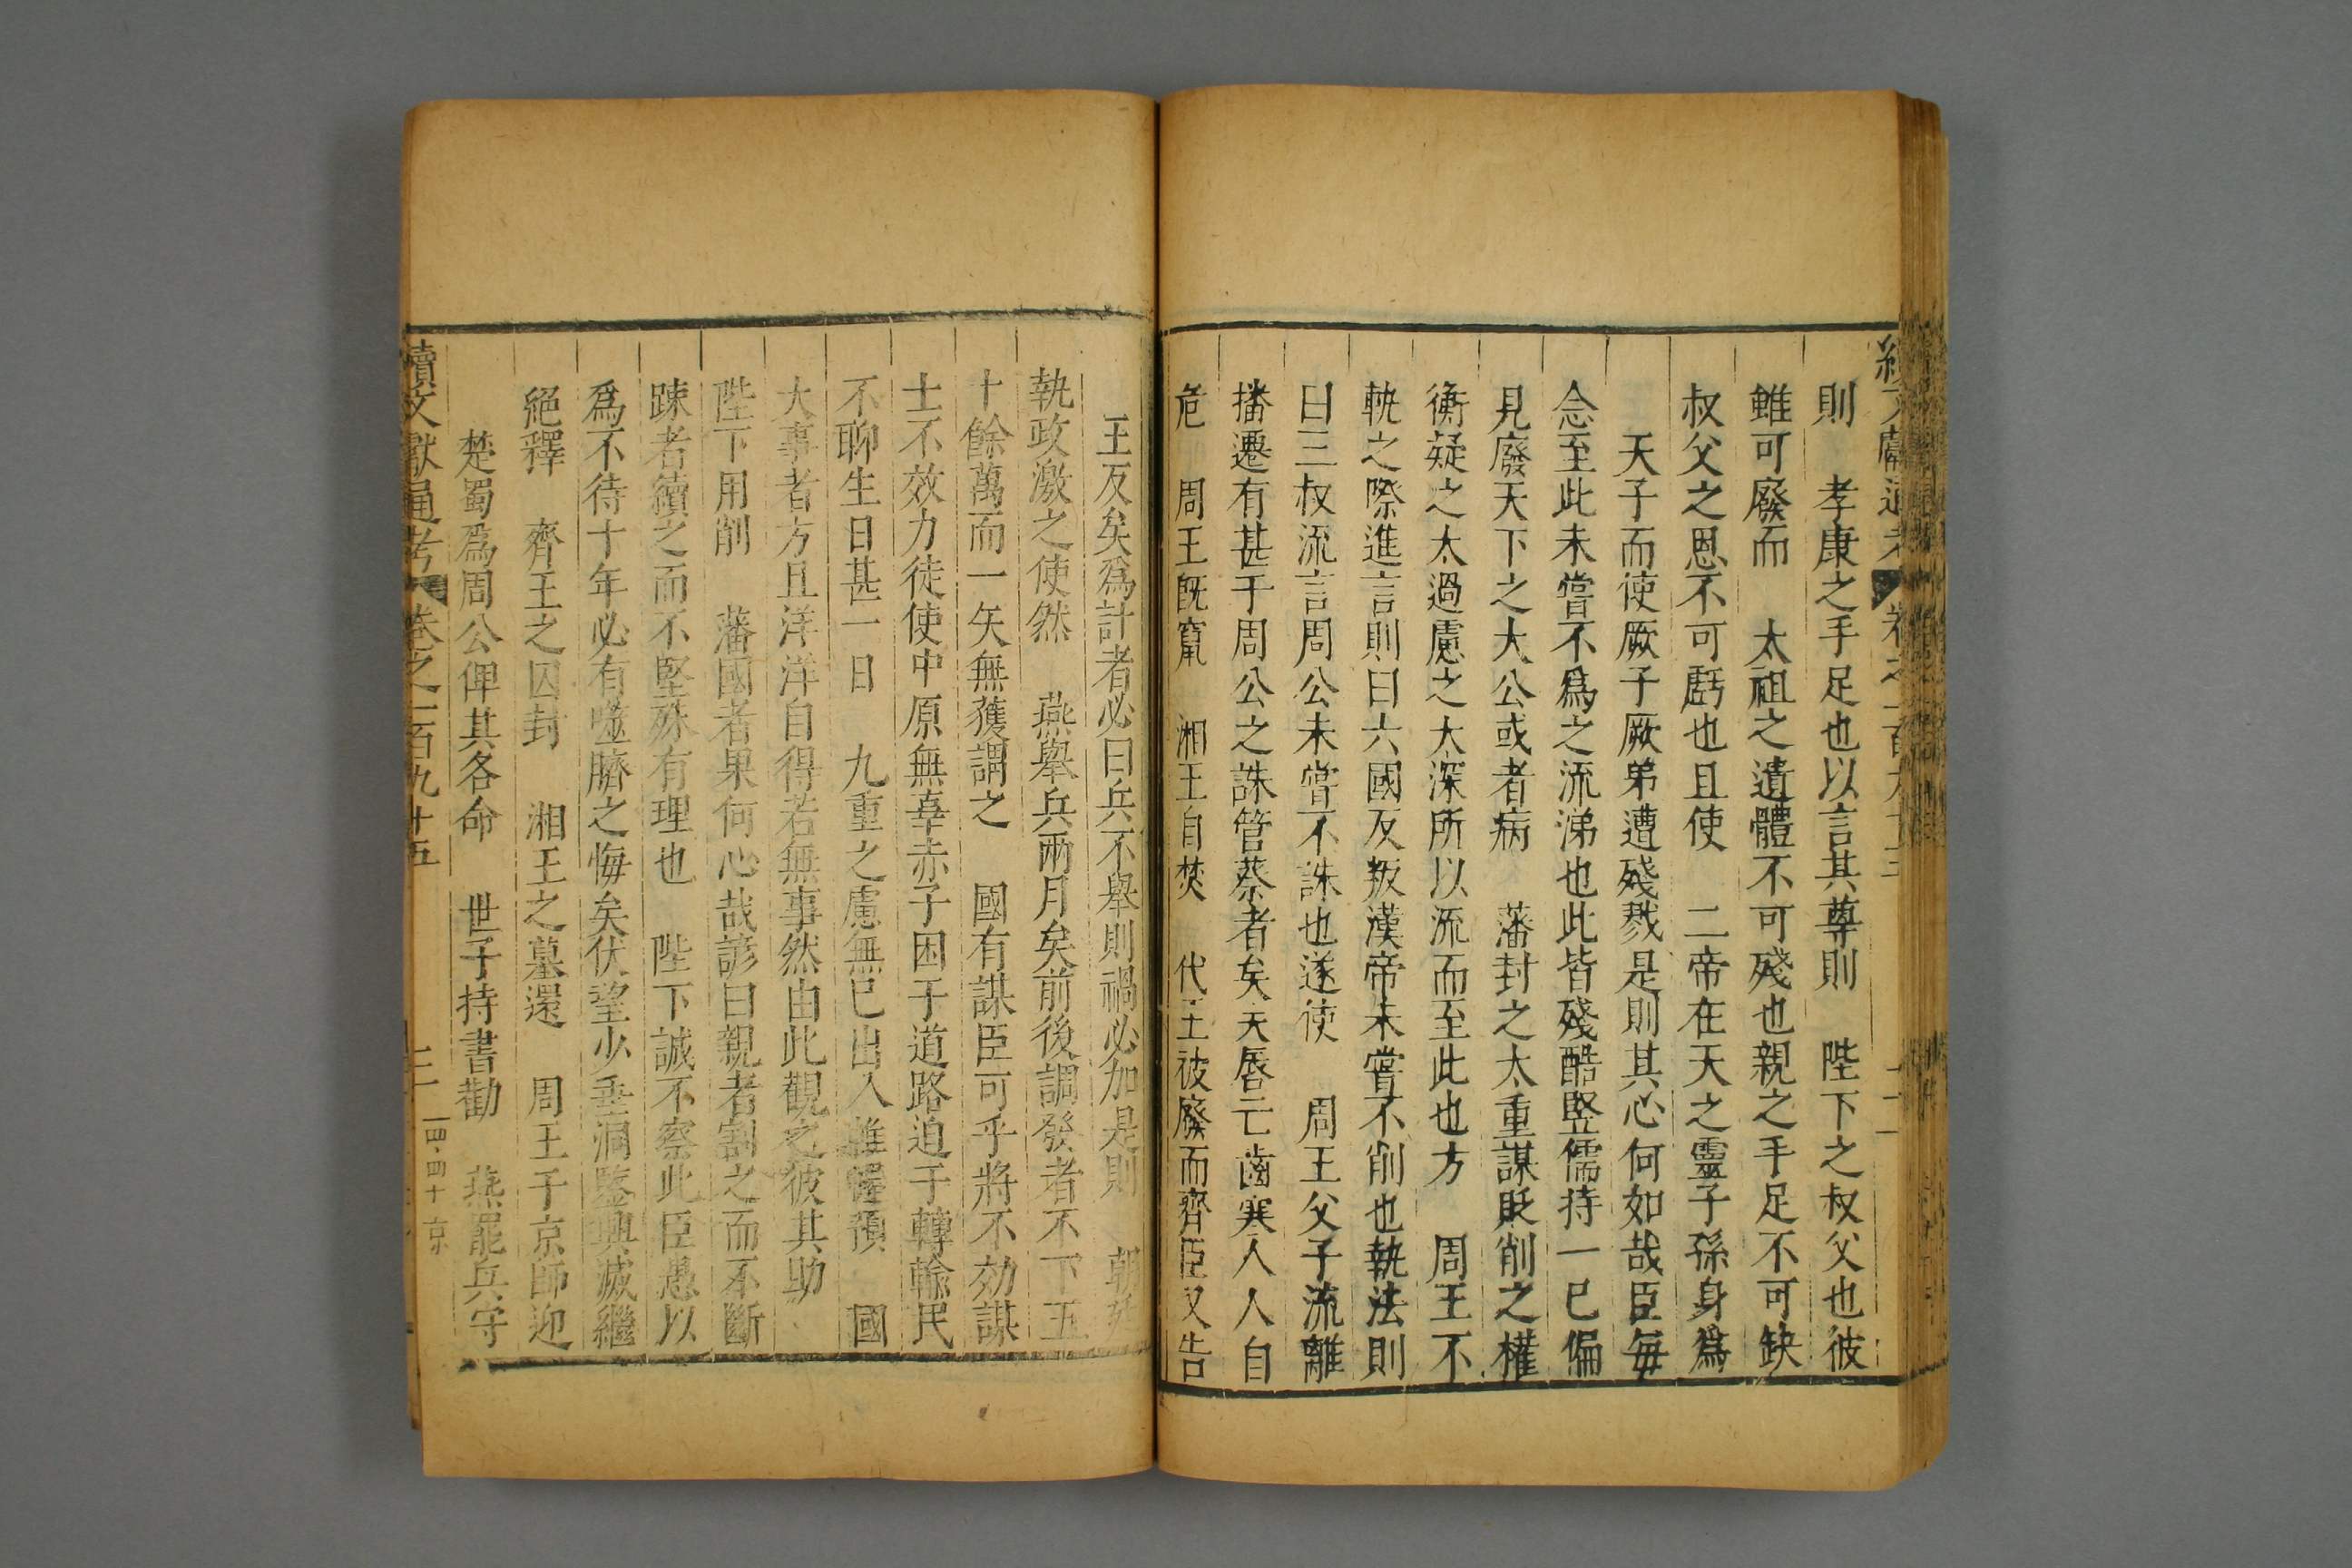 續文獻通考 卷之一百九十五
則 孝康之手足也以言其尊則 陛下之叔父也彼
雖可廢而 太祖之遺體不可殘也親之手足不可缺
叔父之恩不可虧也且使 二帝在天之靈子孫身爲
天子而使厥子厥弟遭殘戮是則其心何如哉臣每
念至此未嘗不爲之流涕也此皆殘酷竪儒持一己偏
見廢天下之大公或者病 藩封之太重謀貶削之權
衡疑之太過慮之太深所以流而至此也方 周王不
軌之際進言則曰六國反叛漢帝未嘗不削也執法則
曰三叔流言周公未嘗不誅也遂使 周王父子流離
播遷有甚于周公之誅管蔡者矣夫唇亡齒寒人人自
危 周王旣竄 湘王自焚 代王被廢而齊臣又告
王反矣爲計者必曰兵不舉則禍必加是則 朝廷
執政激之使然 燕舉兵兩月矣前後調發者不下五
十餘萬而一矢無獲謂之 國有謀臣可乎將不効謀
士不效力徒使中原無辜赤子困于道路迫于轉輸民
不聊生日甚一日 九重之慮無已出入帷幄預 國
大事者方且洋洋自得若無事然由此觀之彼其助
陛下用削 藩國者果何心哉諺曰親者割之而不斷
踈者續之而不堅殊有理也 陛下誠不察此臣愚以
爲不待十年必有噬臍之悔矣伏望少垂洞鑒興滅繼
絕釋 齊王之囚封 湘王之墓還 周王于京師迎
楚蜀爲周公俾其各命 世子持書勸 燕罷兵守
續文獻通考 卷之一百九十五 二 四·四十 京